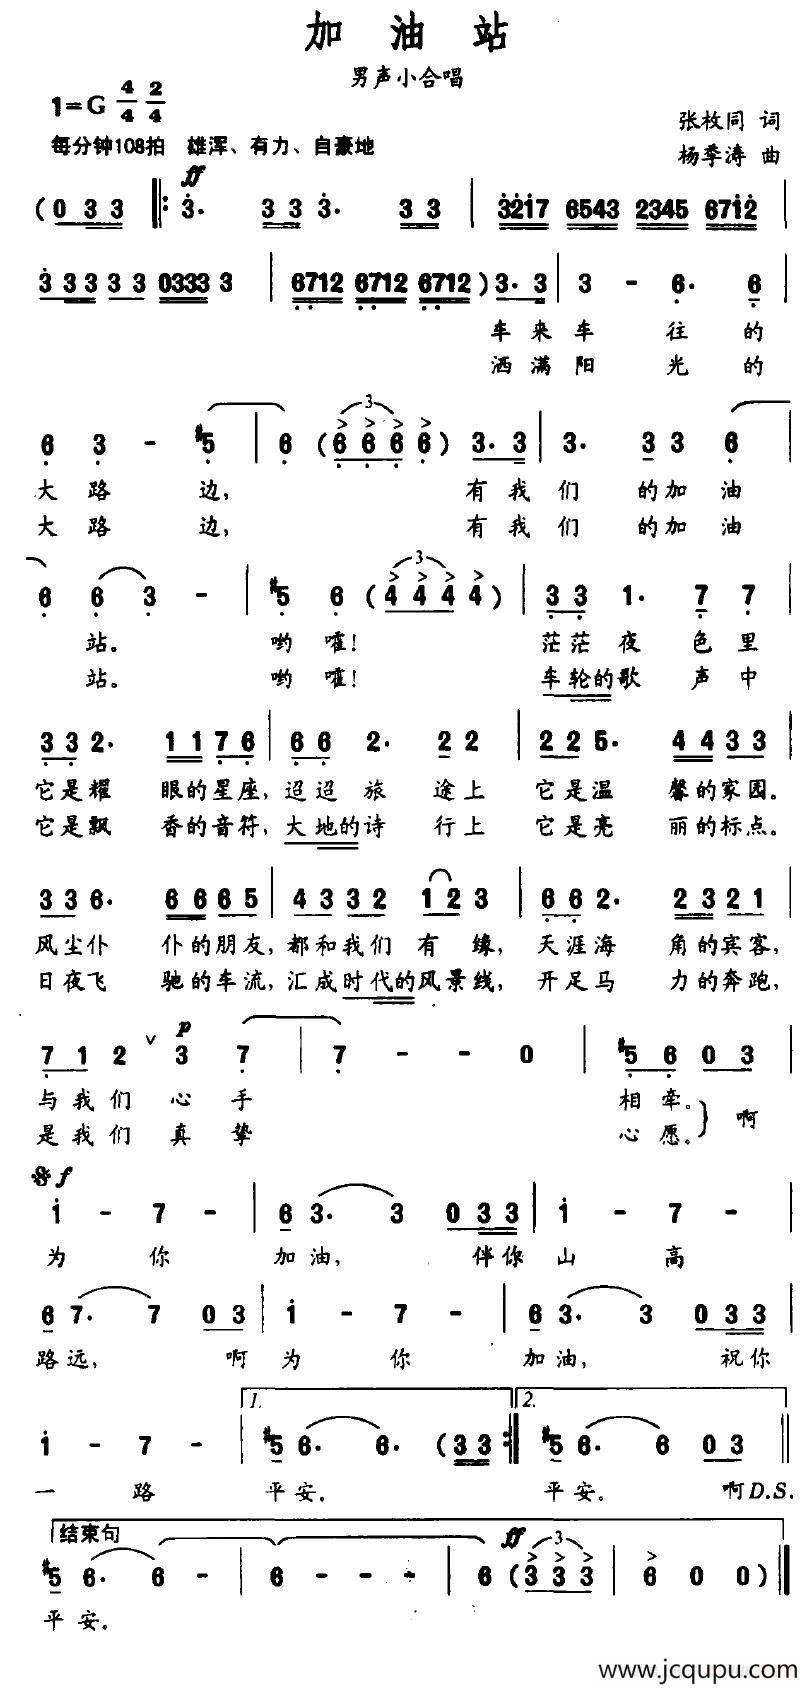 加油站
男声小合唱
1=G 4/4 2/4
张枚同 词
每分钟108拍 雄浑、有力、自豪地
杨季涛 曲
ff
(0 3 3 ‖: 3· 3 3 3· 3 3 | 3217 6543 2345 6712
3 3 3 3 3 0333 3 | 6712 6712 6712) 3· 3 | 3 - 6· 6
车来车 往的
洒满阳 光的
3
6 3 - #5 | 6 (6 6 6 6) 3· 3 | 3· 3 3 6
大路 边, 有我们 的加油
大路 边, 有我们 的加油
3
6 6 3 - | #5 6 (4 4 4 4) | 3 3 1· 7 7
站。 哟嚯! 茫茫夜 色里
站。 哟嚯! 车轮的歌 声中
3 3 2· 1 1 7 6 | 6 6 2· 2 2 | 2 2 5· 4 4 3 3
它是耀 眼的星座, 迢迢旅 途上 它是温 馨的家园。
它是飘 香的音符, 大地的诗 行上 它是亮 丽的标点。
3 3 6· 6 6 6 5 | 4 3 3 2 1 2 3 | 6 6 2· 2 3 2 1
风尘仆 仆的朋友, 都和我们 有缘, 天涯海 角的宾客,
日夜飞 驰的车流, 汇成时代的风景线, 开足马 力的奔跑,
p
7 1 2 ∨ 3 7 | 7 - - 0 | #5 6 0 3
与我们 心手 相牵。 啊
是我们 真挚 心愿。
f
1 - 7 - | 6 3· 3 0 3 3 | 1 - 7 -
为 你 加油, 伴你山 高
6 7· 7 0 3 | 1 - 7 - | 6 3· 3 0 3 3
路远, 啊为 你 加油, 祝你
1. 2.
1 - 7 - | #5 6· 6· (3 3 :‖ #5 6· 6 0 3 ‖
一 路 平安。 平安。 啊D.S.
结束句 ff 3
#5 6· 6 - | 6 - - - | 6 (3 3 3 | 6 0 0) ‖
平安。
www.jcqupu.com